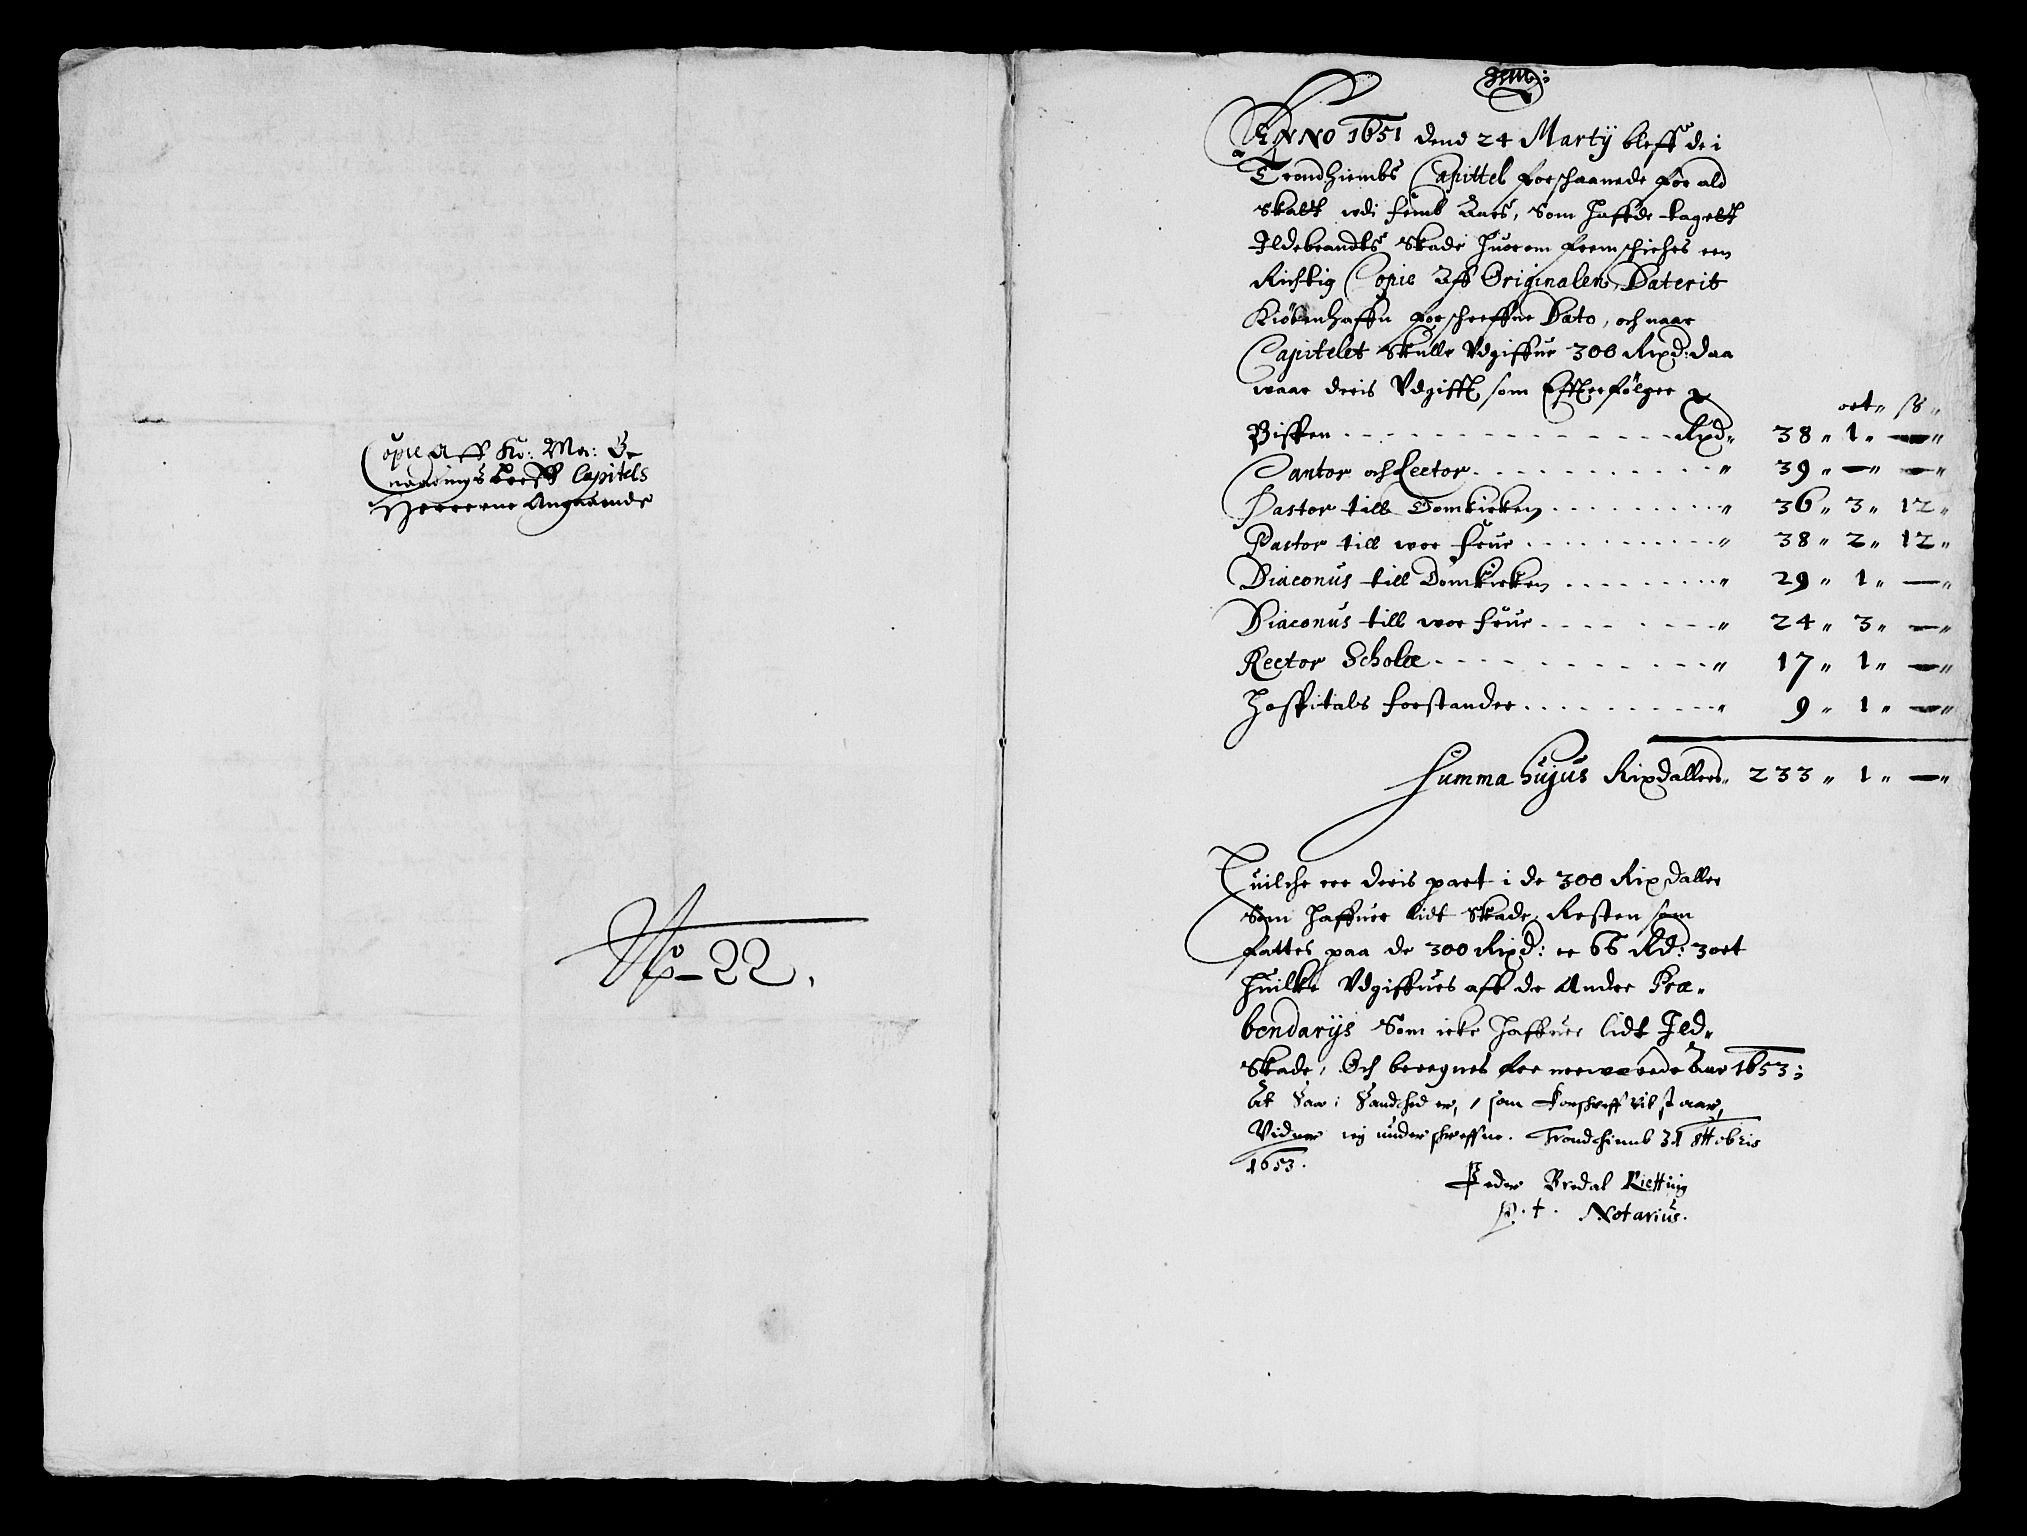 Copie Aff Ko: Ma: Be
naadings breff Capitels
Herrerne Angaaende
No – 22.
Jhm:
ANNO 1651 dend 24 Martÿ bleff de i
Trondhiembs Capittel forschaanede for ald
Skatt udi femb Aars, Som haffde tagett
Ildebrandts Skade huorom fremschiches een
Richtig Copie Aff Originalen, Daterit
Kiöbenhaffn forschreffne Dato, och naar
Capitelet Skulle Udgiffue 300 Rixd: daa
waar deris Udgifft som Effterfölger
ort" ß"
Bispen Rxd" 38 " 1 " — "
Cantor och Lector " 39 " — " — "
Pastor till Domkirken " 36 " 3 " 12 "
Pastor till wor frue " 38 " 2 " 12 "
Diaconus till Domkirken " 29 " 1 " — "
Diaconus till wor frue " 24 " 3 " — "
Rector Scholæ " 17 " 1 " — "
Hospitals forstander " 9 " 1 " — "
Summa hujus Rixdallers " 233 " 1 " — "
Huilche er deris part i de 300 Rixdaller
Som haffuer lidt Skade, Resten som
fattes paa de 300 Rixd: er 66 Rd: 3 ort
huilke Udgiffues aff de Ander Præ-
bendarÿs Som icke haffuer lidt Ild-
Skade, Och beregnes for neerwerende Aar 1653;
At Saa i Sandhed er, som forschreffuit staar,
Vidner ieg underschreffne. Trondhiemb 31 8tobris
1653.
Peder Bredal Rietting
p. t. Notarius.